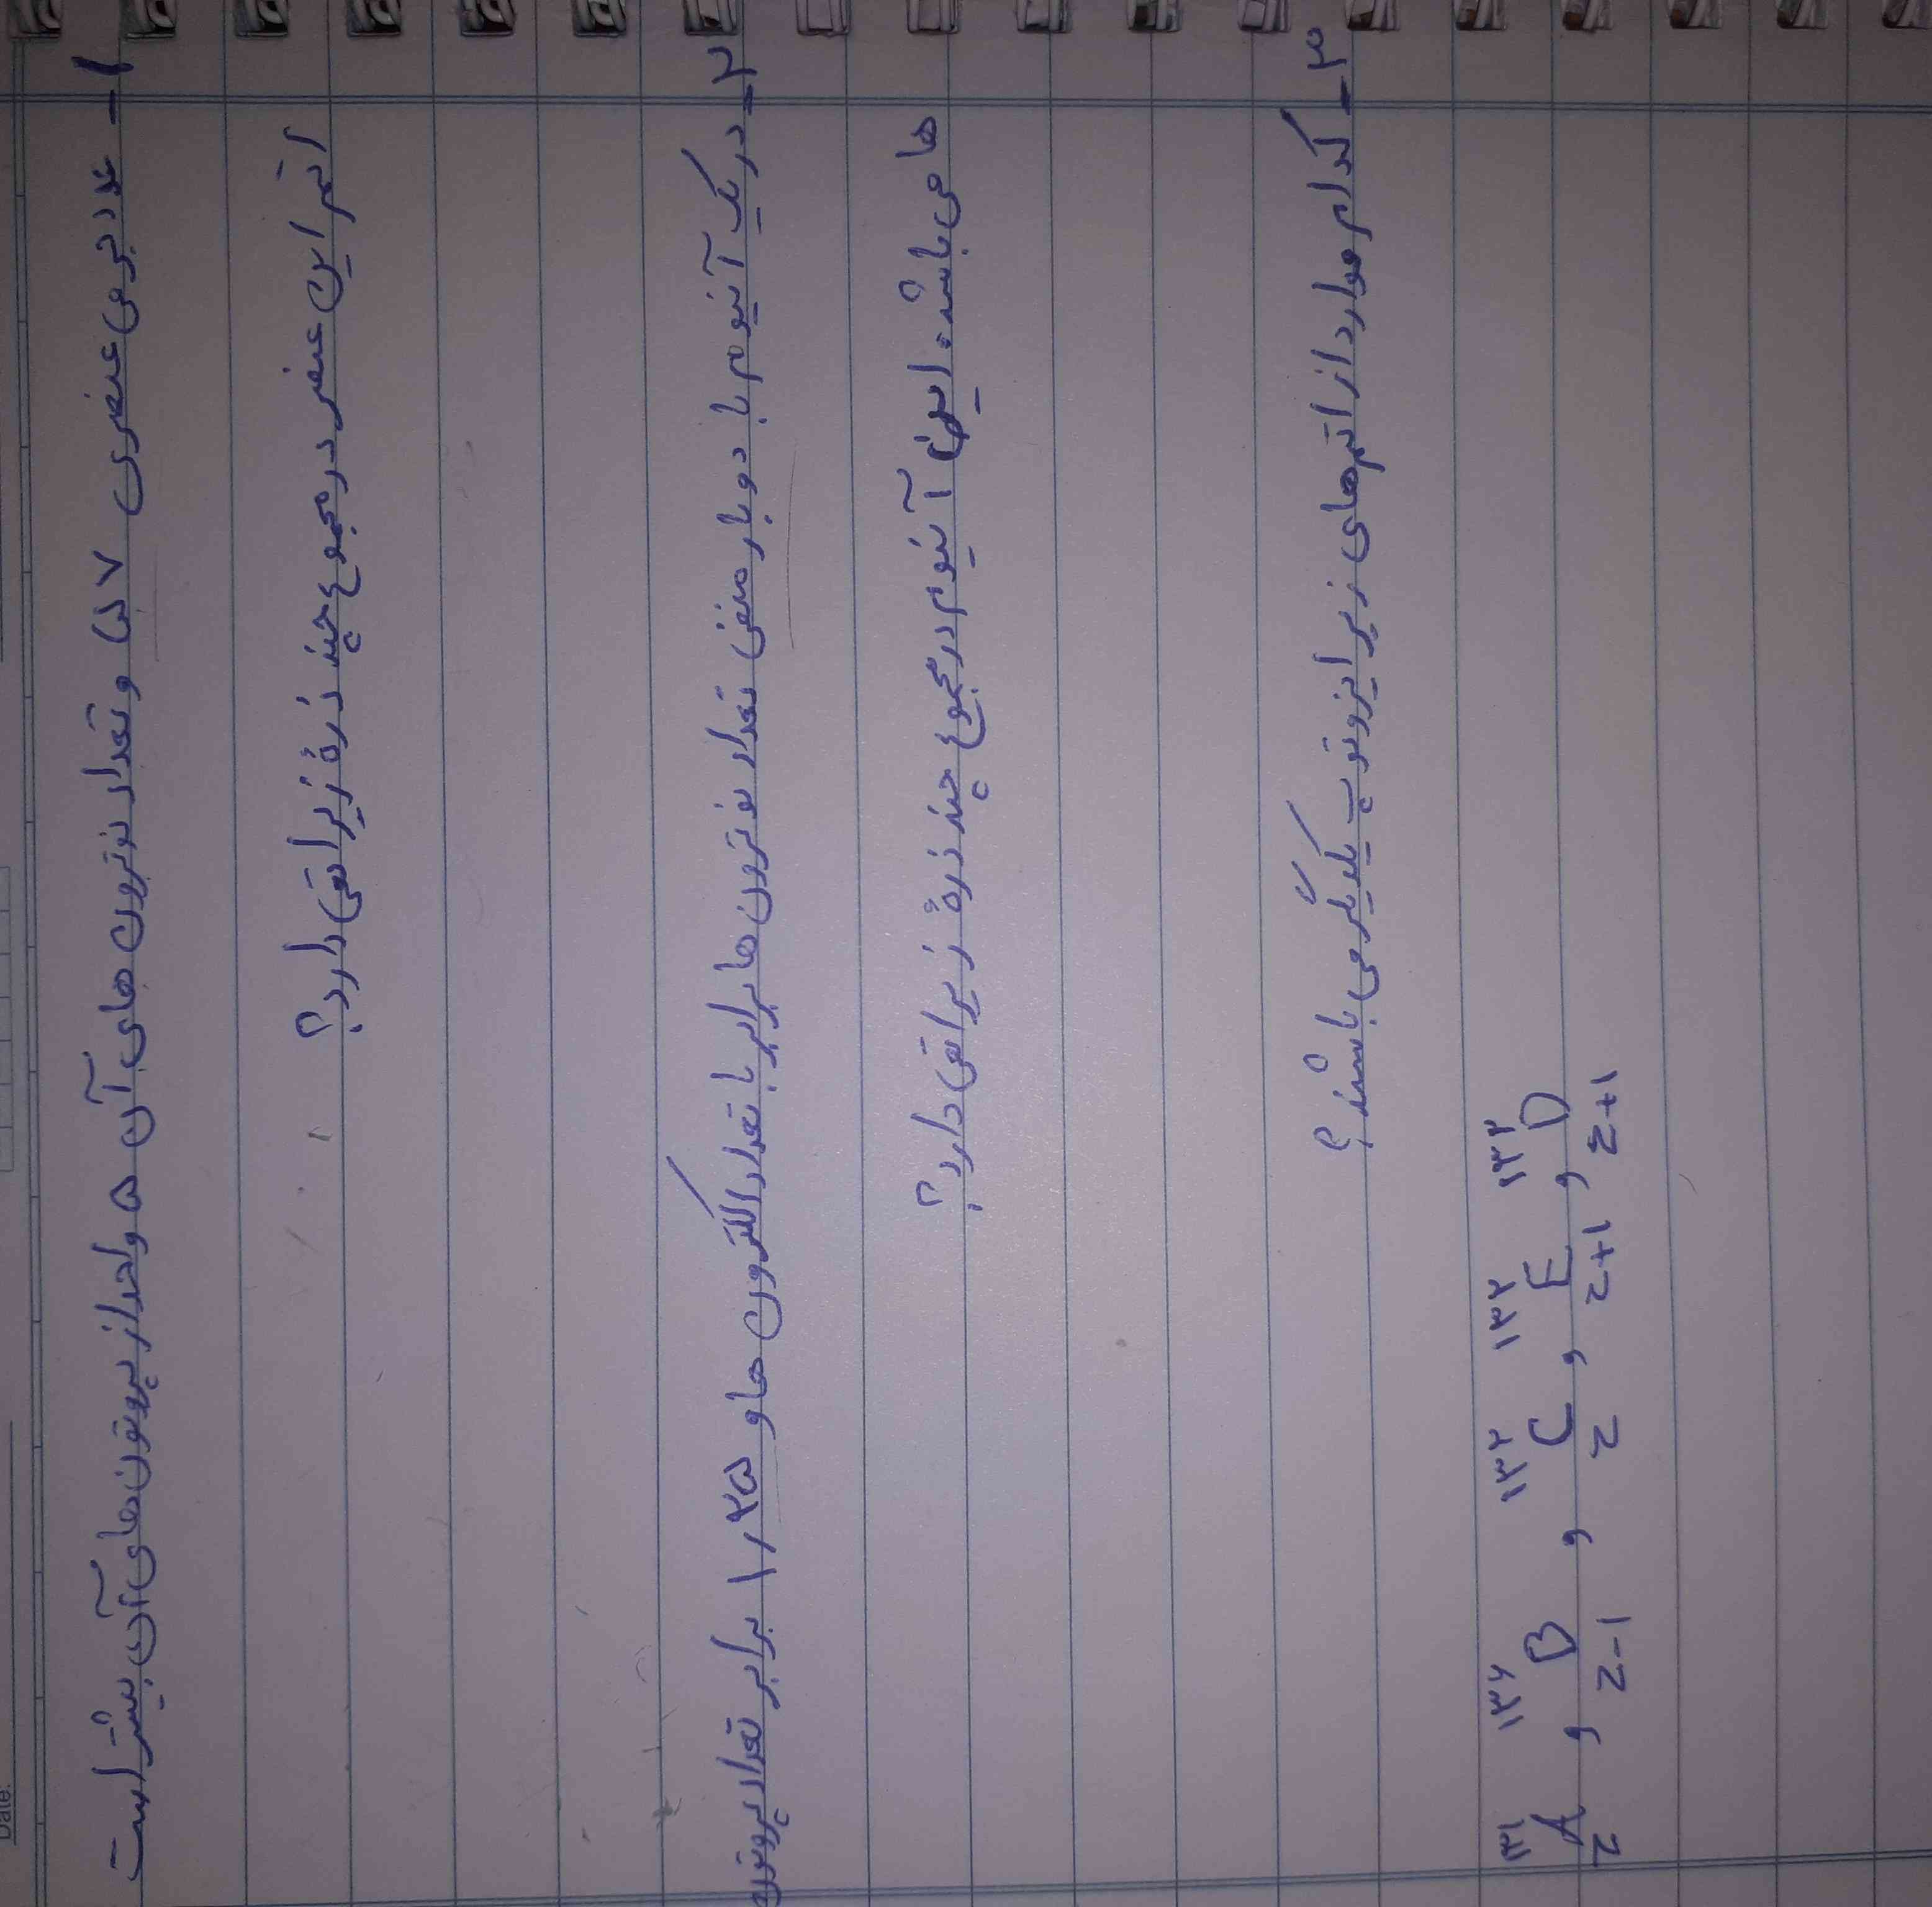 ۱- عدد جرمی عنصری ۵۷ و تعداد نوترون های آن ۵ واحد از پروتون های آن بیشتر است
اتم این عنصر در مجموع چند ذرهٔ زیر اتمی دارد؟
۲- در یک آنیوم با دو بار منفی تعداد نوترون ها برابر با تعداد الکترون ها و ۱,۲۵ برابر تعداد پروتون
ها می باشد. این آنیوم در مجموع چند ذرهٔ زیر اتمی دارد؟
۳- کدام موارد از اتم های زیر ایزوتوپ یکدیگر می باشند؟
۱۳۱ A z , B z-1 , ۱۳۲ C z , ۱۳۳ E z+1 , D z+1